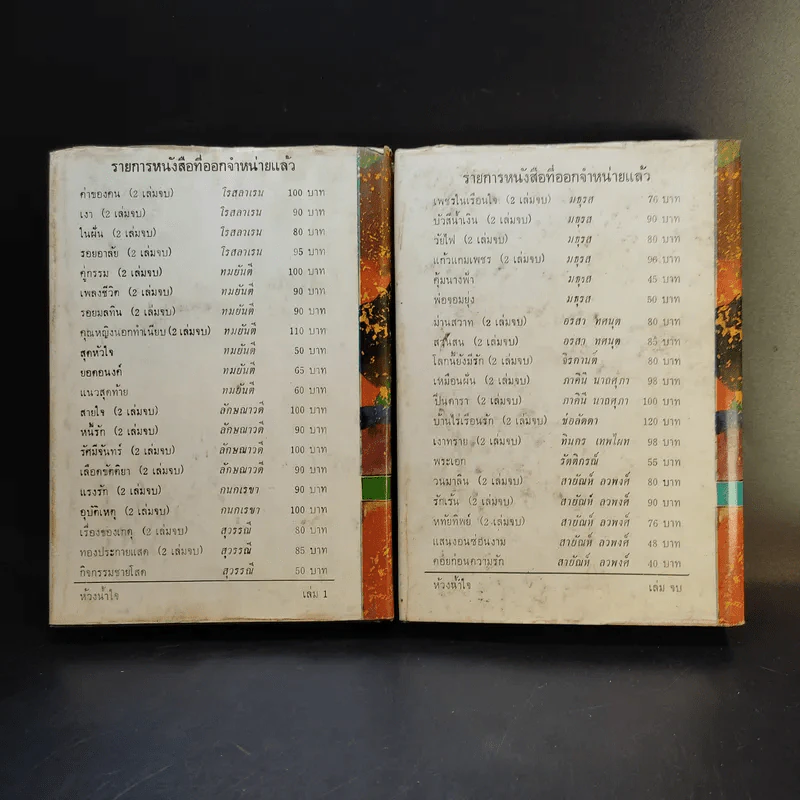 รายการหนังสือที่ออกจำหน่ายแล้ว
ค่าของคน (2 เล่มจบ) โรสลาเรน 100 บาท
เงา (2 เล่มจบ) โรสลาเรน 90 บาท
ในฝัน (2 เล่มจบ) โรสลาเรน 80 บาท
รอยอาลัย (2 เล่มจบ) โรสลาเรน 95 บาท
คู่กรรม (2 เล่มจบ) ทมยันตี 100 บาท
เพลงชีวิต (2 เล่มจบ) ทมยันตี 90 บาท
รอยมลทิน (2 เล่มจบ) ทมยันตี 90 บาท
คุณหญิงนอกทำเนียบ (2 เล่มจบ) ทมยันตี 110 บาท
สุดหัวใจ ทมยันตี 50 บาท
ยอดอนงค์ ทมยันตี 65 บาท
แนวสุดท้าย ทมยันตี 60 บาท
สายใจ (2 เล่มจบ) ลักษณาวดี 100 บาท
หนี้รัก (2 เล่มจบ) ลักษณาวดี 90 บาท
รัศมีจันทร์ (2 เล่มจบ) ลักษณาวดี 100 บาท
เลือดขัตติยา (2 เล่มจบ) ลักษณาวดี 90 บาท
แรงรัก (2 เล่มจบ) กนกเรขา 90 บาท
อุบัติเหตุ (2 เล่มจบ) กนกเรขา 100 บาท
เรื่องของเกตุ (2 เล่มจบ) สุวรรณี 80 บาท
ทองประกายแสด (2 เล่มจบ) สุวรรณี 85 บาท
กิจกรรมชายโสด สุวรรณี 50 บาท
ห้วงน้ำใจ เล่ม 1
รายการหนังสือที่ออกจำหน่ายแล้ว
เพชรในเรือนใจ (2 เล่มจบ) มธุรส 70 บาท
บัวสีน้ำเงิน (2 เล่มจบ) มธุรส 90 บาท
วัยไฟ (2 เล่มจบ) มธุรส 80 บาท
แก้วแกมเพชร (2 เล่มจบ) มธุรส 96 บาท
คุ้มนางฟ้า มธุรส 45 บาท
พ่อจอมยุ่ง มธุรส 50 บาท
ม่านสวาท (2 เล่มจบ) อรสา ทศนุต 80 บาท
(2 เล่มจบ) อรสา ทศนุต 85 บาท
โลกนี้ยังมีรัก (2 เล่มจบ) จิรกานต์ 80 บาท
เหมือนฝัน (2 เล่มจบ) ภาคินี นาถศุภา 98 บาท
ปีนดารา (2 เล่มจบ) ภาคินี นาถศุภา 100 บาท
บ้านไร่เรือนรัก (2 เล่มจบ) ช่อลัดดา 120 บาท
เงาทราย (2 เล่มจบ) ทินกร เทพไผท 98 บาท
พระเอก รัตติกรณ์ 55 บาท
วนมาลิน (2 เล่มจบ) สายัณห์ ลวพงศ์ 80 บาท
รักเร้น (2 เล่มจบ) สายัณห์ ลวพงศ์ 90 บาท
หทัยทิพย์ (2 เล่มจบ) สายัณห์ ลวพงศ์ 76 บาท
แสนงอนซ่อนงาม สายัณห์ ลวพงศ์ 48 บาท
คอยก่อนความรัก สายัณห์ ลวพงศ์ 40 บาท
ห้วงน้ำใจ เล่ม จบ